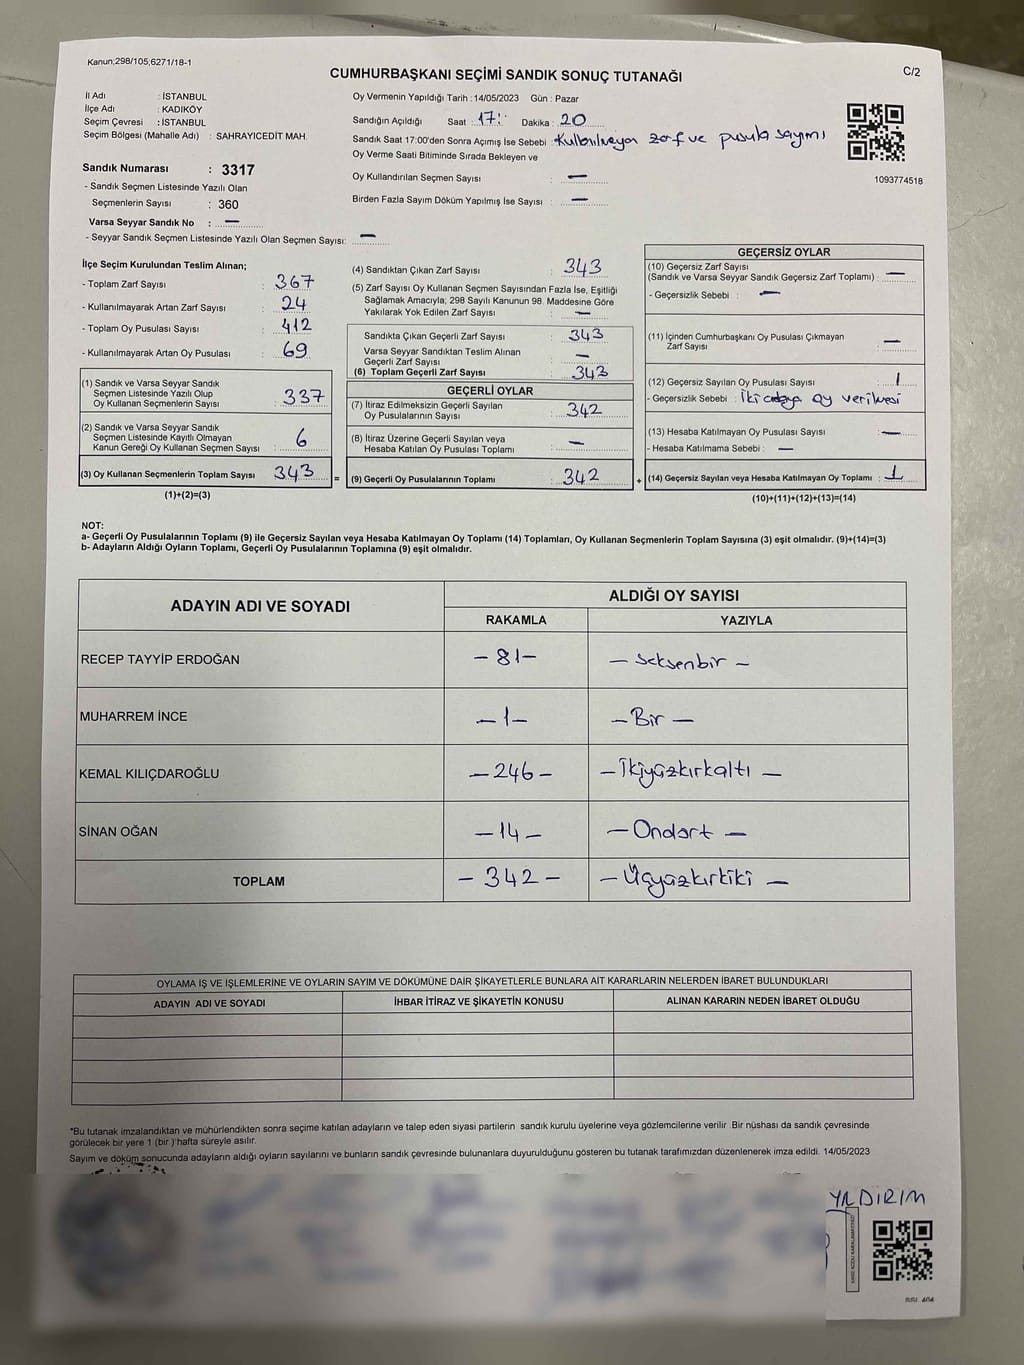 Kanun;298/105,6271/18-1
CUMHURBAŞKANI SEÇİMİ SANDIK SONUÇ TUTANAĞI
C/2
İl Adı : İSTANBUL
İlçe Adı : KADIKÖY
Seçim Çevresi : İSTANBUL
Seçim Bölgesi (Mahalle Adı) : SAHRAYICEDİT MAH.
Sandık Numarası : 3317
- Sandık Seçmen Listesinde Yazılı Olan
Seçmenlerin Sayısı : 360
Varsa Seyyar Sandık No : —
- Seyyar Sandık Seçmen Listesinde Yazılı Olan Seçmen Sayısı: —
Oy Vermenin Yapıldığı Tarih : 14/05/2023 Gün : Pazar
Sandığın Açıldığı Saat : 17 Dakika : 20
Sandık Saat 17:00'den Sonra Açımış İse Sebebi : Kullanılmayan zarf ve pusula sayımı
Oy Verme Saati Bitiminde Sırada Bekleyen ve
Oy Kullandırılan Seçmen Sayısı : —
Birden Fazla Sayım Döküm Yapılmış İse Sayısı : —
1093774518
İlçe Seçim Kurulundan Teslim Alınan;
- Toplam Zarf Sayısı : 367
- Kullanılmayarak Artan Zarf Sayısı : 24
- Toplam Oy Pusulası Sayısı : 412
- Kullanılmayarak Artan Oy Pusulası : 69
(1) Sandık ve Varsa Seyyar Sandık
Seçmen Listesinde Yazılı Olup
Oy Kullanan Seçmenlerin Sayısı : 337
(2) Sandık ve Varsa Seyyar Sandık
Seçmen Listesinde Kayıtlı Olmayan
Kanun Gereği Oy Kullanan Seçmen Sayısı : 6
(3) Oy Kullanan Seçmenlerin Toplam Sayısı : 343 =
(1)+(2)=(3)
(4) Sandıktan Çıkan Zarf Sayısı : 343
(5) Zarf Sayısı Oy Kullanan Seçmen Sayısından Fazla İse, Eşitliği
Sağlamak Amacıyla, 298 Sayılı Kanunun 98. Maddesine Göre
Yakılarak Yok Edilen Zarf Sayısı : —
Sandıkta Çıkan Geçerli Zarf Sayısı : 343
Varsa Seyyar Sandıktan Teslim Alınan
Geçerli Zarf Sayısı : —
(6) Toplam Geçerli Zarf Sayısı : 343
GEÇERLİ OYLAR
(7) İtiraz Edilmeksizin Geçerli Sayılan
Oy Pusulalarının Sayısı : 342
(8) İtiraz Üzerine Geçerli Sayılan veya
Hesaba Katılan Oy Pusulası Toplamı : —
(9) Geçerli Oy Pusulalarının Toplamı : 342 +
GEÇERSİZ OYLAR
(10) Geçersiz Zarf Sayısı
(Sandık ve Varsa Seyyar Sandık Geçersiz Zarf Toplamı) : —
- Geçersizlik Sebebi : —
(11) İçinden Cumhurbaşkanı Oy Pusulası Çıkmayan
Zarf Sayısı : —
(12) Geçersiz Sayılan Oy Pusulası Sayısı : 1
- Geçersizlik Sebebi : İki adaya oy verilmesi
(13) Hesaba Katılmayan Oy Pusulası Sayısı : —
- Hesaba Katılmama Sebebi : —
(14) Geçersiz Sayılan veya Hesaba Katılmayan Oy Toplamı : 1
(10)+(11)+(12)+(13)=(14)
NOT:
a- Geçerli Oy Pusulalarının Toplamı (9) ile Geçersiz Sayılan veya Hesaba Katılmayan Oy Toplamı (14) Toplamları, Oy Kullanan Seçmenlerin Toplam Sayısına (3) eşit olmalıdır. (9)+(14)=(3)
b- Adayların Aldığı Oyların Toplamı, Geçerli Oy Pusulalarının Toplamına (9) eşit olmalıdır.
ADAYIN ADI VE SOYADI
ALDIĞI OY SAYISI
RAKAMLA YAZIYLA
RECEP TAYYİP ERDOĞAN — 81 — — seksenbir —
MUHARREM İNCE — 1 — — Bir —
KEMAL KILIÇDAROĞLU — 246 — — İkiyüzkırkaltı —
SİNAN OĞAN — 14 — — Ondört —
TOPLAM — 342 — — Üçyüzkırkiki —
OYLAMA İŞ VE İŞLEMLERİNE VE OYLARIN SAYIM VE DÖKÜMÜNE DAİR ŞİKAYETLERLE BUNLARA AİT KARARLARIN NELERDEN İBARET BULUNDUKLARI
ADAYIN ADI VE SOYADI İHBAR İTİRAZ VE ŞİKAYETİN KONUSU ALINAN KARARIN NEDEN İBARET OLDUĞU
*Bu tutanak imzalandıktan ve mühürlendikten sonra seçime katılan adayların ve talep eden siyasi partilerin sandık kurulu üyelerine veya gözlemcilerine verilir .Bir nüshası da sandık çevresinde
görülecek bir yere 1 (bir ) hafta süreyle asılır.
Sayım ve döküm sonucunda adayların aldığı oyların sayılarını ve bunların sandık çevresinde bulunanlara duyurulduğunu gösteren bu tutanak tarafımızdan düzenlenerek imza edildi. 14/05/2023
YILDIRIM